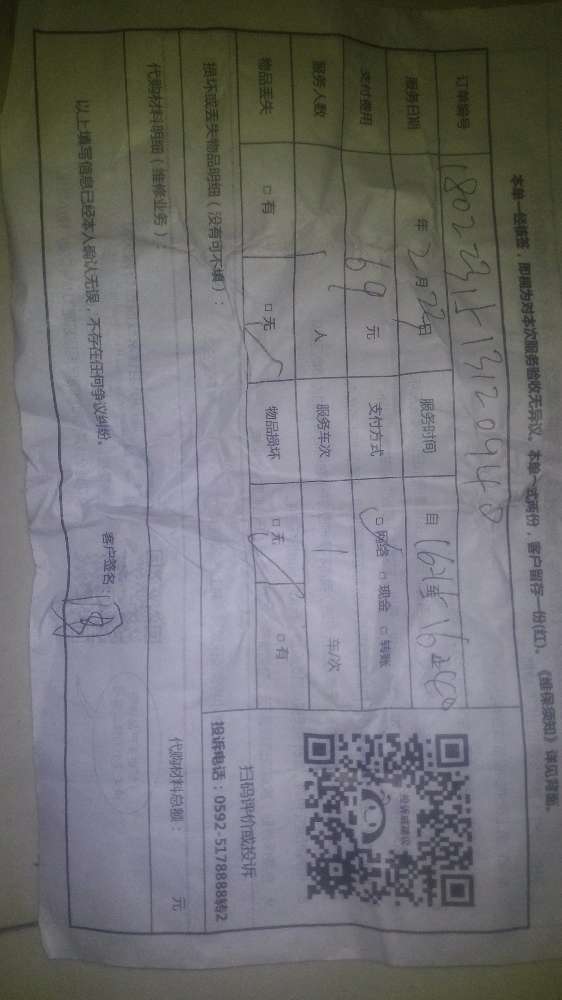 本单一经核签，即视为对本次服务验收无异议。本单一式两份，客户留存一份(红)。《维保须知》详见背面。
订单编号
服务日期 年 2月 日 服务时间 自 至
支付费用 69 元 支付方式 □ 网络 □ 现金 □ 转账
服务人数 1 人 服务车次 1 车/次
物品丢失 □ 有 □ 无 物品损坏 □ 无 □ 有
扫码评价或投诉
投诉电话：0592-5178888转2
损坏或丢失物品明细（没有可不填）：
代购材料明细（维修业务）： 代购材料总额： 元
以上填写信息已经本人确认无误，不存在任何争议纠纷。
客户签名：